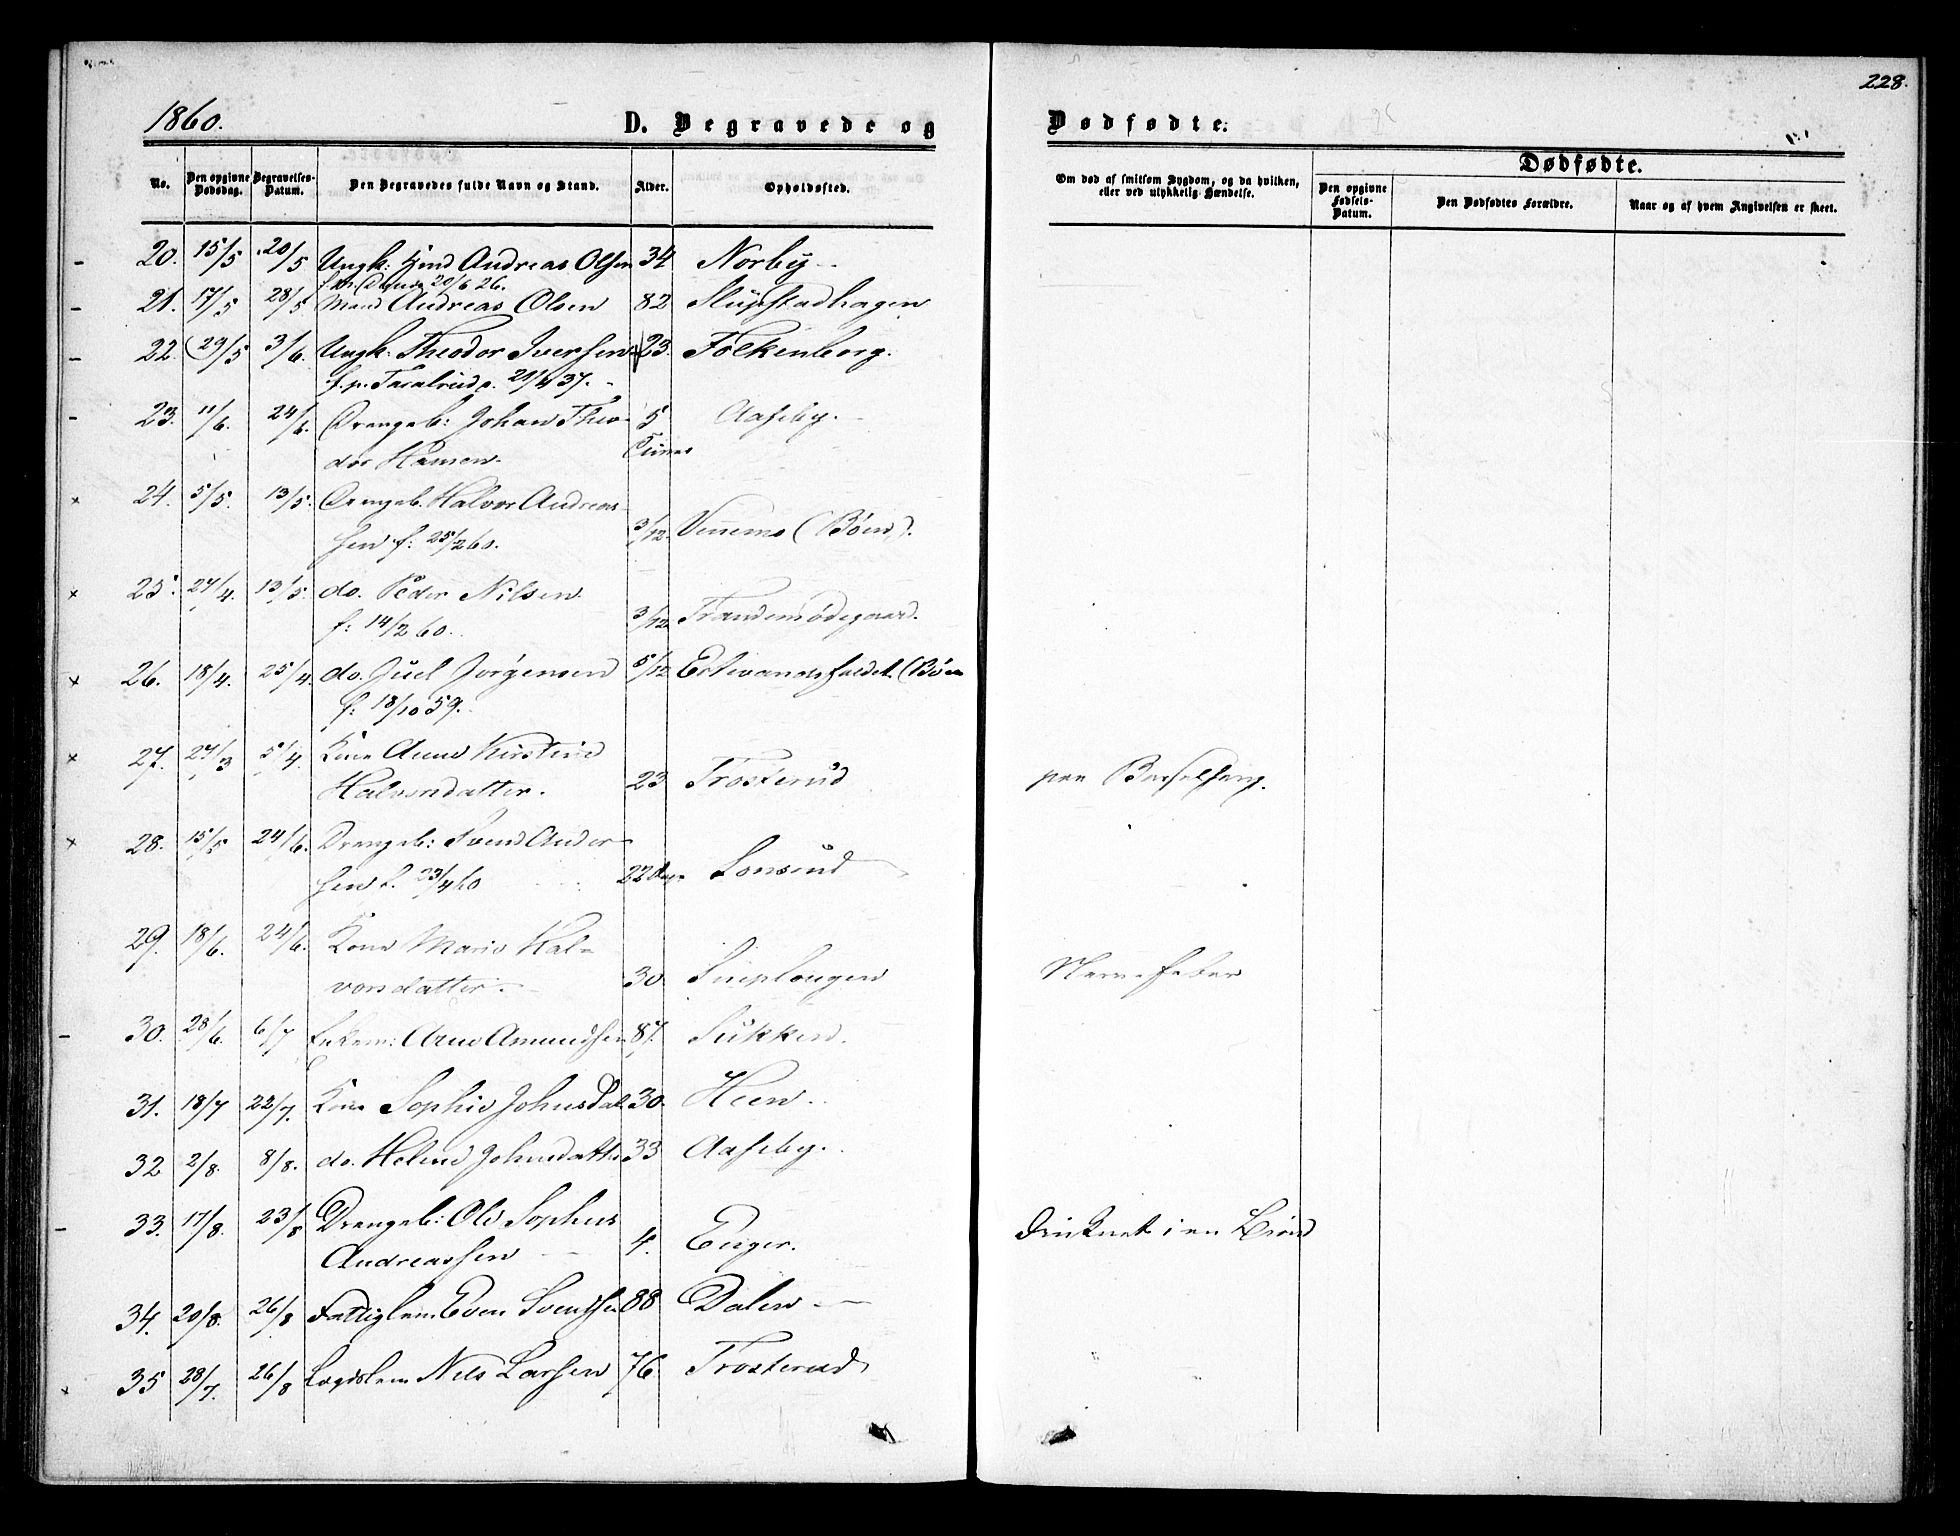 228.
1860.
D. Begravede og
Dødfødte.
No.
Den opgivne Dødsdag.
Begravelses-Datum.
Den Begravedes fulde Navn og Stand.
Alder.
Opholdssted.
Om død af smitsom Sygdom, og da hvilken, eller ved ulykkelig Hændelse.
Dødfødte.
Den opgivne Fødsels-Datum.
Den Dødfødtes Forældre.
Naar og af hvem Angivelsen er skeet.
20. 15/5 20/5 Ungk: Andreas Olsen 34 Norby
20/6 26.
21. 17/5 28/5 Mand Andreas Olsen 82 Slupstadhagen
22. 29/5 3/6. Ungk: Theodor Iversen 23. Folkenborg.
f. p. 21/4 37.
23. 11/6. 24/6. Drengeb: Johan Theo- 5 Aaseby.
dor Hansen Timer
24. 5/5. 13/5. Drengeb. Halvor Andreas-
sen f: 25/2 60. 3/12. Vennemo (Böen).
25. 27/4. 13/5. do. Peder Nilsen
f: 14/2 60. 3/12. Trandemsödegaard.
26. 18/4. 25/4. do. Juel Jörgensen 5/12 Ertevandsholdet. (Böen
f: 18/10 59.
27. 27/3 5/4. Kone Anne Kirstine
Halvorsdatter. 23 Trosterud paa Barselseng.
28. 15/5 24/6. Drengeb: Svend Ander-
sen f. 23/4 60 22 Dage Lonsrud
29. 18/6. 24/6. Kone Marie Hal-
vorsdatter. 30. Nervefeber
30. 28/6. 6/7 Enkem: Arne Amundsen 87. Sukken.
31. 18/7 22/7. Kone Sophie Johnsdat. 30. Heen.
32 2/8. 8/8. do. Helene Johnsdatter 33 Aaseby.
33. 17/8. 23/8 Drengeb: Ole Sophus
Andreassen 4. Enger. Druknet i en Brönd
34. 20/8. 26/8 Fattiglem. Even Svendsen 88 Dalen
35 28/7. 26/8 Lægdslem Nils Larsen 76. Trosterud